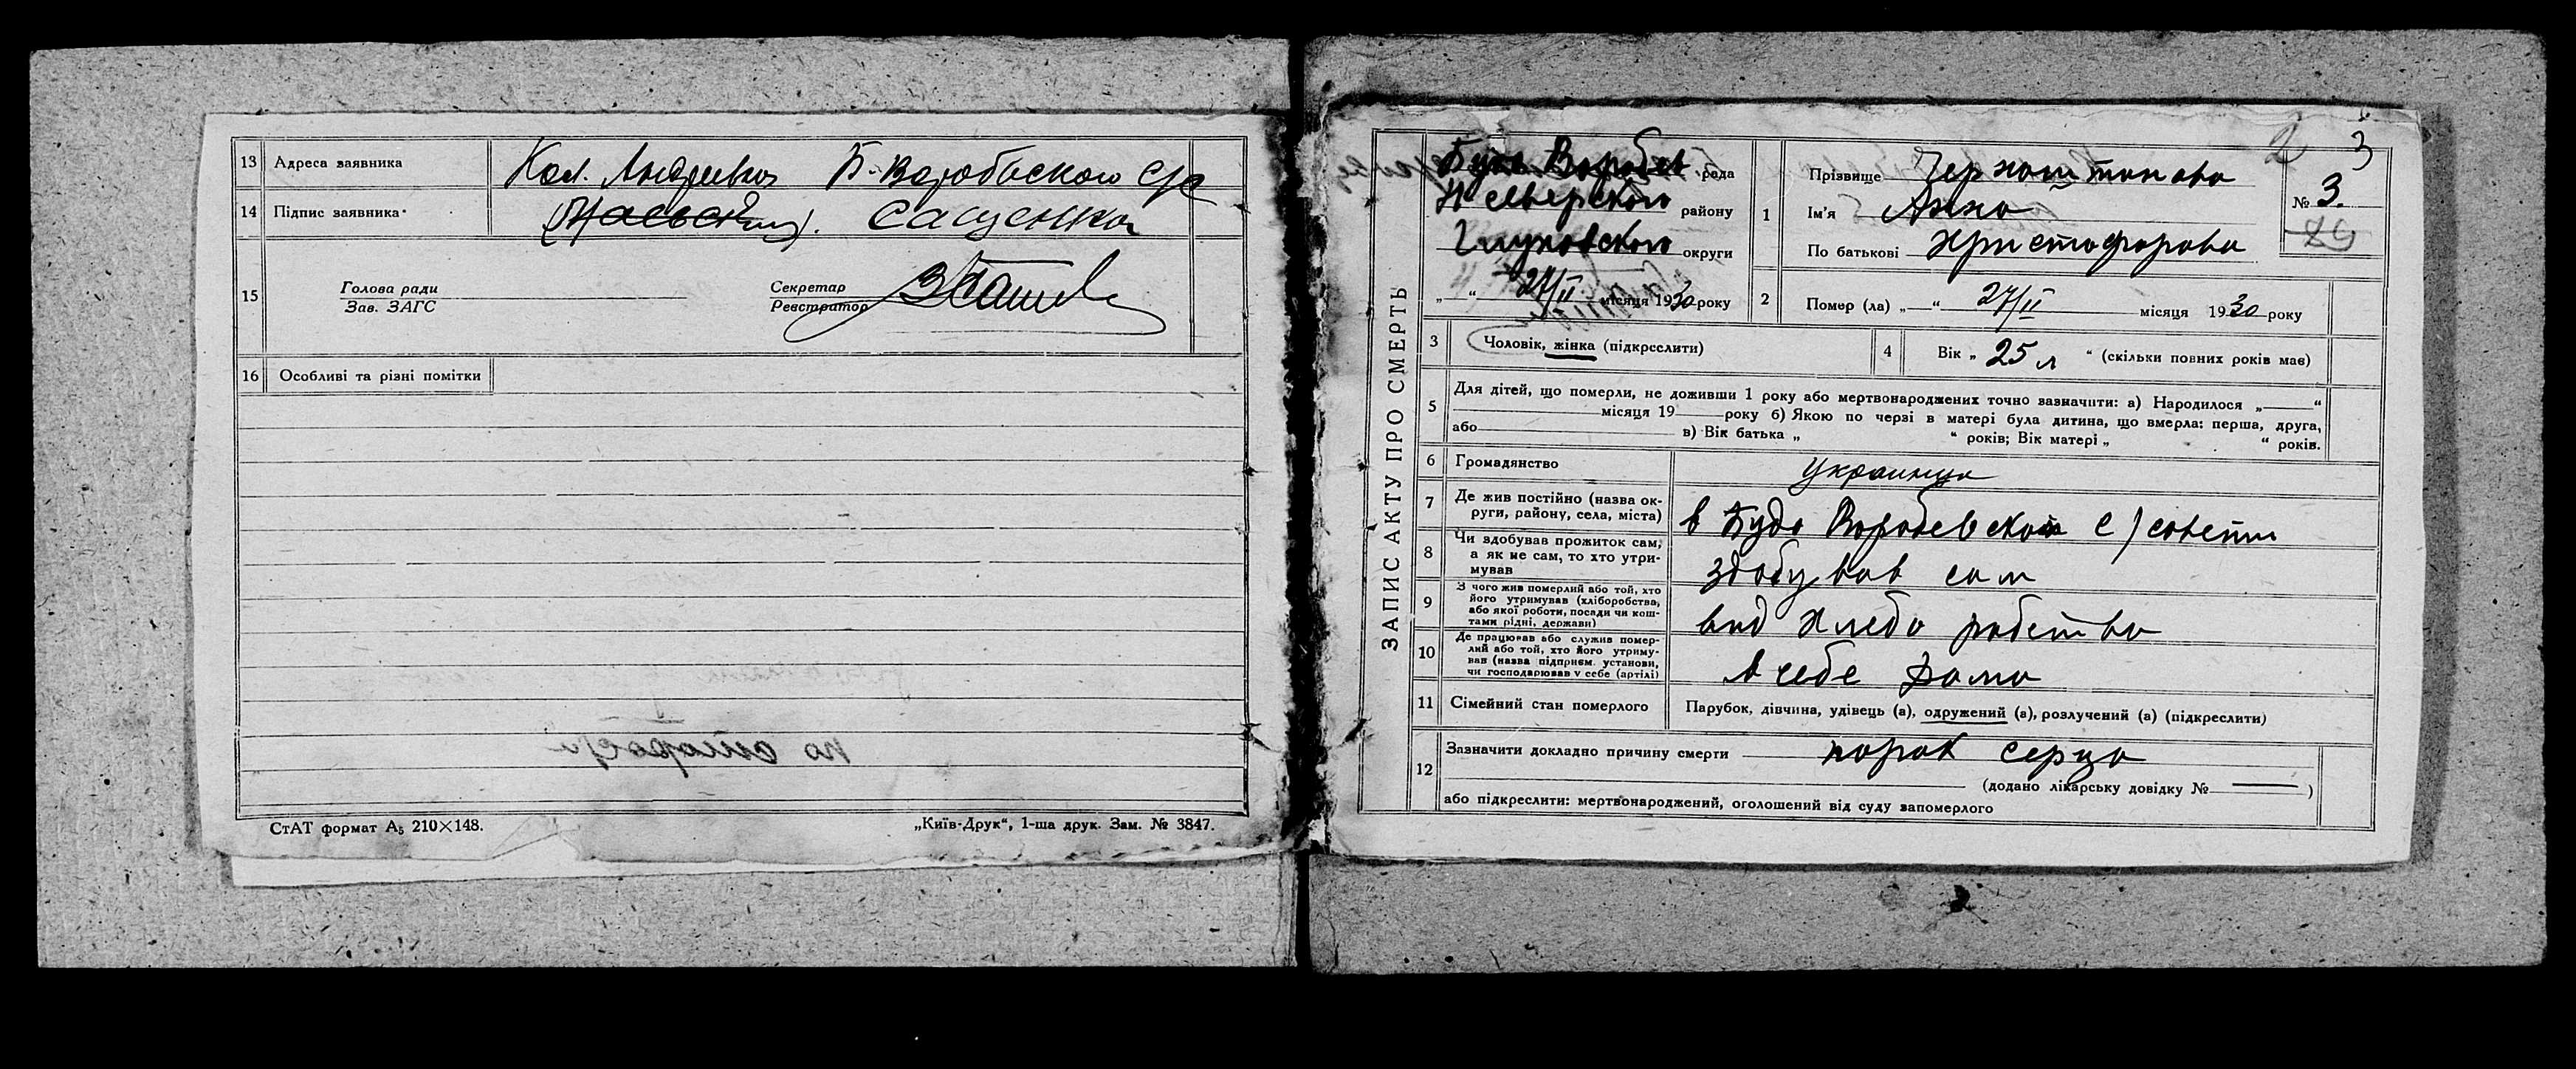 13 Адреса заявника Кол. Андреевка Б-Воробьеского С/с
14 Підпис заявника Сащенко
15 Голова ради
Зав. ЗАГС
Секретар
Реєстратор
16 Особливі та різні помітки
СтАТ формат А5 210×148.
„Київ-Друк“, 1-ша друк. Зам. № 3847.
2 3
ЗАПИС АКТУ ПРО СМЕРТЬ
Буда Воробев. рада
Н Северского району
Глуховского округи
„ “ 27/II місяця 1930 року
1 Прізвище
Ім'я Анна
По батькові Христофорова
№ 3.
2 Помер (ла) „ “ 27/II місяця 1930 року
3 Чоловік, жінка (підкреслити)
4 Вік „ 25 л “ (скільки повних років має)
5 Для дітей, що померли, не доживши 1 року або мертвонароджених точно зазначити: а) Народилося „ “
місяця 19 року б) Якою по черзі в матері була дитина, що вмерла: перша, друга,
або в) Вік батька „ “ років; Вік матері „ “ років.
6 Громадянство украинца
7 Де жив постійно (назва ок-
руги, району, села, міста) в Буда Воробевской с/совети
8 Чи здобував прожиток сам,
а як не сам, то хто утри-
мував здобував сам
9 З чого жив померлий або той, хто
його утримував (хліборобства,
або якої роботи, посади чи кош-
тами рідні, держави) вид хлебо робства
10 Де працював або служив помер-
лий або той, хто його утриму-
вав (назва підприєм. установи,
чи господарював у себе (артілі) в себе дома
11 Сімейний стан померлого Парубок, дівчина, удівець (а), одружений (а), розлучений (а) (підкреслити)
12 Зазначити докладно причину смерти порок серца
(додано лікарську довідку № — )
або підкреслити: мертвонароджений, оголошений від суду запомерлого